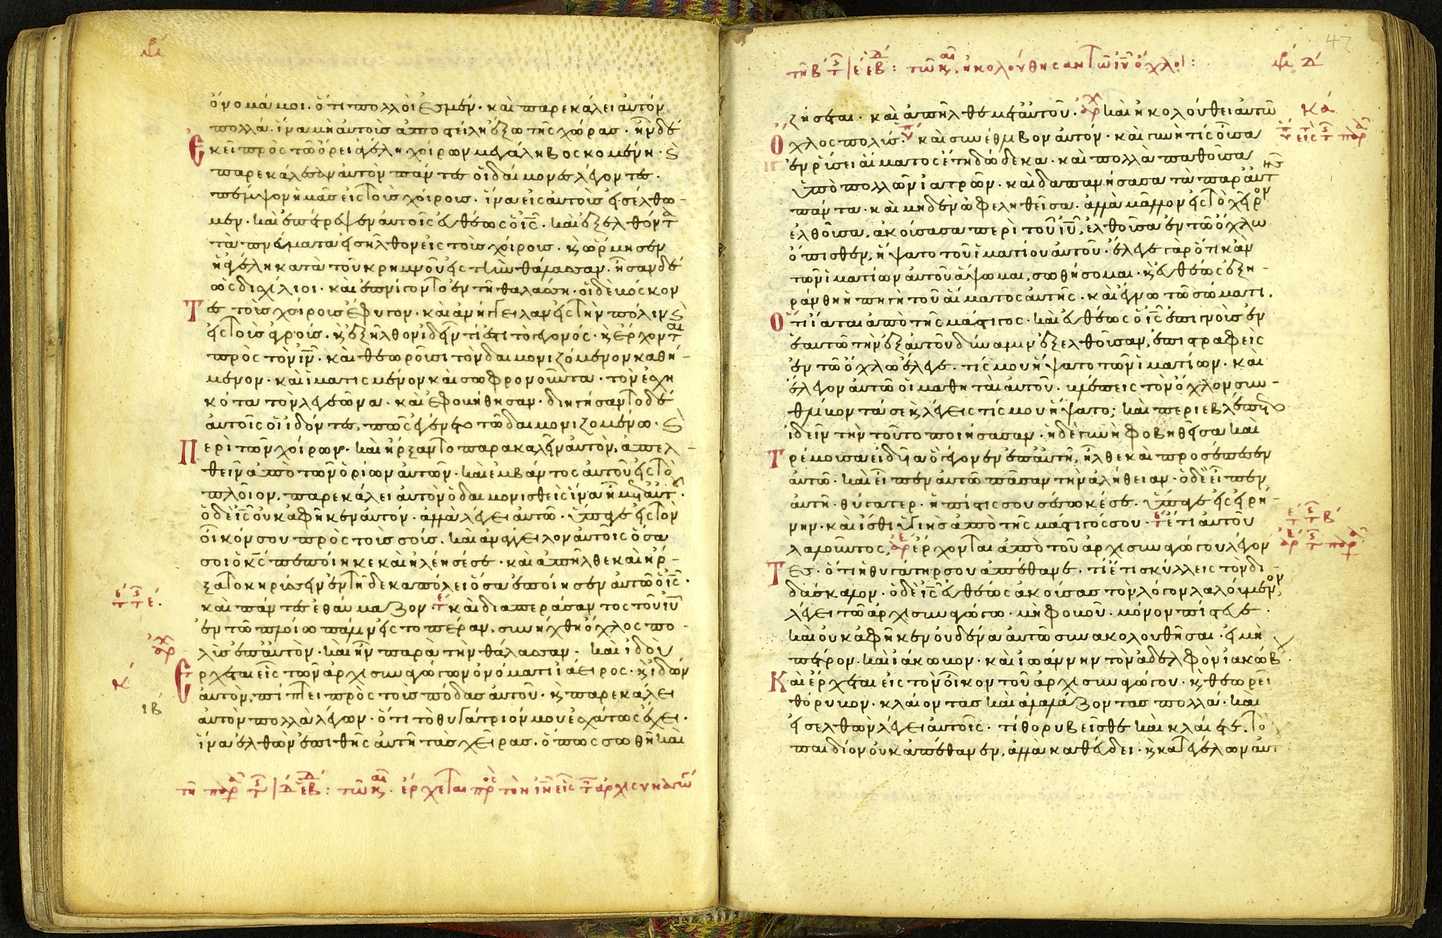 ὄνομά μοι· ὅτι πολλοὶ ἐσμέν· καὶ παρεκάλει αὐτὸν
πολλὰ· ἵνα μὴ αὐτοὺς ἀποστείλη ἔξω τῆς χώρας· ἦν δὲ
ἐκεῖ πρὸς τῶ ὄρει ἀγέλη χοίρων μεγάλη βοσκομένη·
παρεκάλεσαν αὐτὸν πάντες οἱ δαίμονες λέγοντες·
πέμψον ἡμᾶς εἰς τοὺς χοίρους· ἵνα εἰς αὐτοὺς εἰσέλθω
μεν· καὶ ἐπέτρεψεν αὐτοῖς εὐθέως ὁ ις· καὶ ἐξελθόντα
τὰ πνεύματα εἰσῆλθον εἰς τοὺς χοίρους· κ ὥρμησεν
ἡ ἀγέλη κατὰ τοῦ κρημνοῦ εἰς τὴν θάλασσαν· ἦσαν δὲ
ὡς δισχίλιοι· καὶ ἐπνίγοντο ἐν τῆ θαλάσση· οἱ δὲ βόσκον
τες τοὺς χοίρους ἔφυγον· καὶ ἀνήγγειλαν εἰς τὴν πόλιν
εἰς τοὺς ἀγρούς· κ ἐξῆλθον ἰδεῖν τί ἐστι τὸ γεγονός· κ ἔρχονται
πρὸς τὸν ιν· καὶ θεωροῦσι τὸν δαιμονιζόμενον καθή
μενον· καὶ ἱματισμένον καὶ σωφρονοῦντα· τὸν ἐσχη
κότα τὸν λεγεῶνα· καὶ ἐφοβήθησαν· διηγήσαντο δὲ
αὐτοῖς οἱ ἰδόντες, πῶς ἐγένετο τῶ δαιμονιζομένω·
περὶ τῶν χοίρων· καὶ ἤρξαντο παρακαλεῖν αὐτὸν, ἀπελ
θεῖν ἀπὸ τῶν ὁρίων αὐτῶν· καὶ ἐμβάντος αὐτοῦ εἰς τὸ
πλοῖον, παρεκάλει αὐτὸν ὁ δαιμονισθεὶς ἵνα ἦ μετ αὐτοῦ·
ὁ δὲ ις οὐκ ἀφῆκεν αὐτόν· ἀλλὰ λέγει αὐτῶ· ὕπαγε εἰς τὸν
οἶκον σου πρὸς τοὺς σούς· καὶ ἀνάγγειλον αὐτοῖς ὅσα
σοι ὁ κς πεποίηκε καὶ ἠλέησέ σε· καὶ ἀπῆλθε καὶ ἤρ
ξατο κηρύσσειν ἐν τῆ δεκαπόλει ὅσα ἐποίησεν αὐτῶ ὁ ις·
καὶ πάντες ἐθαύμαζον καὶ διαπεράσαντος τοῦ ιυ
ἐν τῶ πλοίω πάλιν εἰς τὸ πέραν, συνήχθη ὄχλος πο
λὺς ἐπ αὐτόν· καὶ ἦν παρὰ τὴν θάλασσαν· καὶ ἰδοὺ
ἔρχεται εἷς τῶν ἀρχισυναγώγων ὀνόματι ἰάειρος· κ ἰδὼν
αὐτὸν, πίπτει πρὸς τοὺς πόδας αὐτοῦ· κ παρεκάλει
αὐτὸν πολλὰ λέγων· ὅτι τὸ θυγάτριόν μου ἐσχάτως ἔχει·
ἵνα ἐλθὼν ἐπιθῆς αὐτῆ τὰς χεῖρας· ὅπως σωθῆ καὶ
47
ζήσεται· καὶ ἀπῆλθε μετ αὐτοῦ· καὶ ἠκολούθει αὐτῶ
ὄχλος πολύς· καὶ συνέθλιβον αὐτόν· καὶ γυνή τις οὖσα
ἐν ῥύσει αἵματος ἔτη δώδεκα· καὶ πολλὰ παθοῦσα
ὑπὸ πολλῶν ἰατρῶν· καὶ δαπανήσασα τὰ παρ αὐτῆς
πάντα· καὶ μηδὲν ὠφεληθεῖσα· ἀλλὰ μᾶλλον εἰς τὸ χεῖρον
ἐλθοῦσα, ἀκούσασα περὶ τοῦ ιυ, ἐλθοῦσα ἐν τῶ ὄχλω
ὄπισθεν, ἥψατο τοῦ ἱματίου αὐτοῦ· ἔλεγε γὰρ ὅτι κἂν
τῶν ἱματίων αὐτοῦ ἅψωμαι, σωθήσομαι· κ εὐθέως ἐξη
ράνθη ἡ πηγὴ τοῦ αἵματος αὐτῆς· καὶ ἔγνω τῶ σώματι,
ὅτι ἴαται ἀπὸ τῆς μάστιγος· καὶ εὐθέως ὁ ις ἐπιγνοὺς ἐν
ἑαυτῶ τὴν ἐξ αὐτοῦ δύναμιν ἐξελθοῦσαν, ἐπιστραφεὶς
ἐν τῶ ὄχλω ἔλεγε· τίς μου ἥψατο τῶν ἱματίων· καὶ
ἔλεγον αὐτῶ οἱ μαθηταὶ αὐτοῦ· βλέπεις τὸν ὄχλον συν
θλίβοντά σε κ λέγεις τίς μου ἥψατο; καὶ περιεβλέπετο
ἰδεῖν τὴν τοῦτο ποιήσασαν· ἡ δὲ γυνὴ φοβηθεῖσα καὶ
τρέμουσα εἰδυῖα ὃ γέγονεν ἐπ αὐτῆ, ἦλθε καὶ προσέπεσεν
αὐτῶ· καὶ εἶπεν αὐτῶ πᾶσαν τὴν ἀλήθειαν· ὁ δὲ εἶπεν
αὐτῆ· θύγατερ· ἡ πίστις σου σέσωκέ σε· ὕπαγε εἰς εἰρή
νην· καὶ ἴσθι ὑγιὴς ἀπὸ τῆς μάστιγός σου· ἔτι αὐτοῦ
λαλοῦντος, ἔρχονται ἀπὸ τοῦ ἀρχισυναγώγου λέγον
τες· ὅτι ἡ θυγάτηρ σου ἀπέθανε· τί ἔτι σκύλλεις τὸν δι
δάσκαλον· ὁ δὲ ις εὐθέως ἀκούσας τὸν λόγον λαλούμενον,
λέγει τῶ ἀρχισυναγώγω· μὴ φοβοῦ· μόνον πίστευε·
καὶ οὐκ ἀφῆκεν οὐδένα αὐτῶ συνακολουθῆσαι· εἰ μὴ
πέτρον· καὶ ἰάκωβον· καὶ ἰωάννην τὸν ἀδελφὸν ἰακώβ·
καὶ ἔρχεται εἰς τὸν οἶκον τοῦ ἀρχισυναγώγου· κ θεωρεῖ
θόρυβον· κλαίοντας καὶ ἀλαλάζοντας πολλά· καὶ
εἰσελθὼν λέγει αὐτοῖς· τί θορυβεῖσθε καὶ κλαίετε, τὸ
παιδίον οὐκ ἀπέθανεν, ἀλλὰ καθεύδει· κ κατεγέλων αὐτοῦ